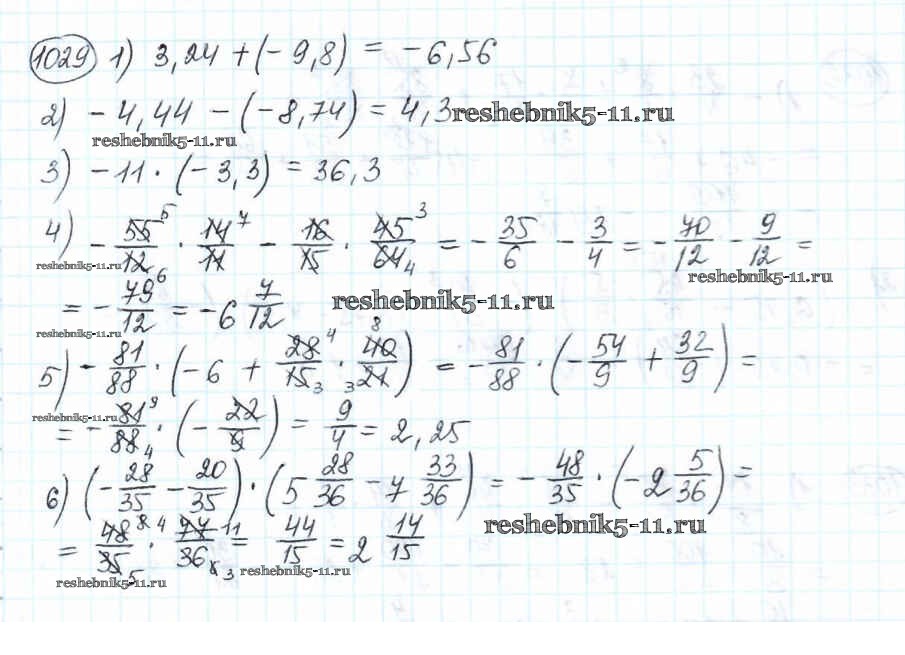 1029 1) 3,24 + (- 9,8) = - 6,56
2) - 4,44 - (- 8,74) = 4,3 reshebnik5-11.ru
reshebnik5-11.ru
3) - 11 · (- 3,3) = 36,3
4) - 55/12 · 14/11 - 16/15 · 45/64 = - 35/6 - 3/4 = - 70/12 - 9/12 =
reshebnik5-11.ru reshebnik5-11.ru
= - 79/12 = - 6 7/12 reshebnik5-11.ru
reshebnik5-11.ru
5) - 81/88 · (- 6 + 28/15 · 40/21) = - 81/88 · (- 54/9 + 32/9) =
reshebnik5-11.ru
= - 81/88 · (- 22/9) = 9/4 = 2,25
6) (- 28/35 - 20/35) · (5 28/36 - 7 33/36) = - 48/35 · (- 2 5/36) =
reshebnik5-11.ru
= 48/35 · 77/36 = 44/15 = 2 14/15
reshebnik5-11.ru reshebnik5-11.ru